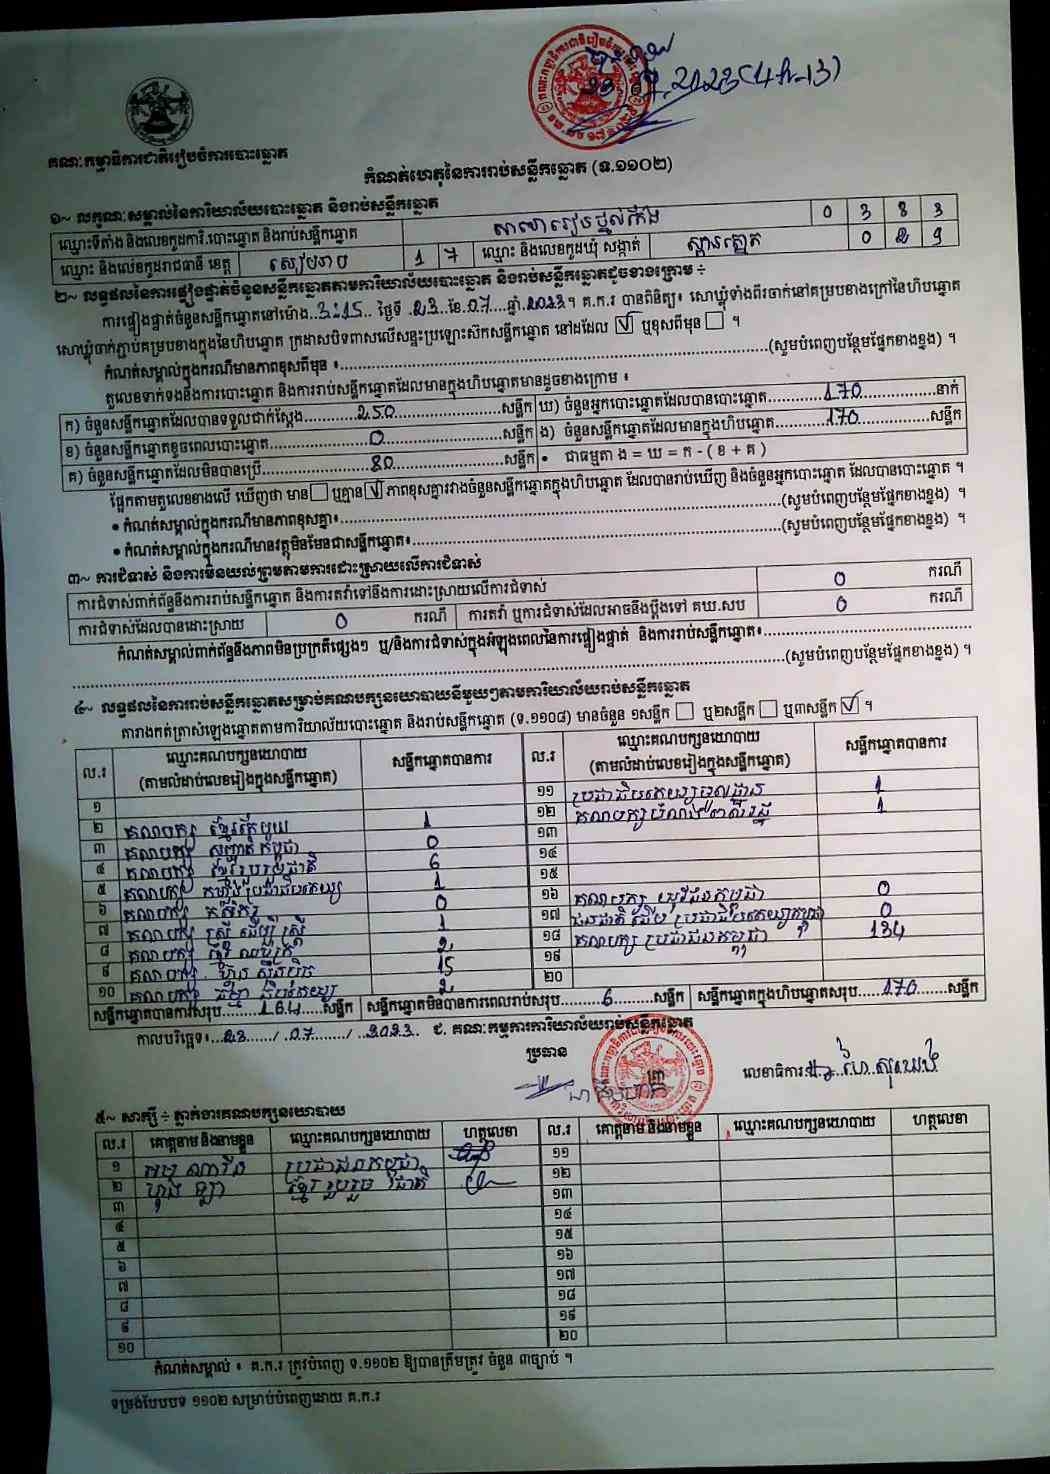 23 07. 2023 (4h-13)
គណៈកម្មាធិការជាតិរៀបចំការបោះឆ្នោត
កំណត់ហេតុនៃការរាប់សន្លឹកឆ្នោត (ទ.១១០២)
១~ លក្ខណៈសម្គាល់នៃការិយាល័យបោះឆ្នោត និងរាប់សន្លឹកឆ្នោត
ឈ្មោះទីតាំង និងលេខកូដការិ.បោះឆ្នោត និងរាប់សន្លឹកឆ្នោត 0 3 8 3
ឈ្មោះ និងលេខកូដរាជធានី ខេត្ត សៀមរាប 1 7 ឈ្មោះ និងលេខកូដឃុំ សង្កាត់ 0 2 9
២~ លទ្ធផលនៃការផ្ទៀងផ្ទាត់ចំនួនសន្លឹកឆ្នោតតាមការិយាល័យបោះឆ្នោត និងរាប់សន្លឹកឆ្នោតដូចខាងក្រោម ÷
ការផ្ទៀងផ្ទាត់ចំនួនសន្លឹកឆ្នោតនៅម៉ោង..3:15.. ថ្ងៃទី .23..ខែ.07....ឆ្នាំ.2023។ គ.ក.រ បានពិនិត្យ៖ សោឃ្លុំទាំងពីរចាក់នៅគម្របខាងក្រៅនៃហិបឆ្នោត
សោឃ្លុំចាក់ភ្ជាប់គម្របខាងក្នុងនៃហិបឆ្នោត ក្រដាសបិទពាសលើសន្ទះប្រឡោះស៊កសន្លឹកឆ្នោត នៅដដែល ☑ ឬខុសពីមុន ☐ ។
កំណត់សម្គាល់ក្នុងករណីមានភាពខុសពីមុន ៖..........(សូមបំពេញបន្ថែមផ្នែកខាងខ្នង) ។
តួលេខទាក់ទងនឹងការបោះឆ្នោត និងការរាប់សន្លឹកឆ្នោតដែលមានក្នុងហិបឆ្នោតមានដូចខាងក្រោម ៖
ក) ចំនួនសន្លឹកឆ្នោតដែលបានទទួលជាក់ស្ដែង..........250..........សន្លឹក ឃ) ចំនួនអ្នកបោះឆ្នោតដែលបានបោះឆ្នោត..........170..........នាក់
ខ) ចំនួនសន្លឹកឆ្នោតខូចពេលបោះឆ្នោត..........0..........សន្លឹក ង) ចំនួនសន្លឹកឆ្នោតដែលមានក្នុងហិបឆ្នោត..........170..........សន្លឹក
គ) ចំនួនសន្លឹកឆ្នោតដែលមិនបានប្រើ..........80..........សន្លឹក • ជាធម្មតា ង = ឃ = ក - ( ខ + គ )
ផ្អែកតាមតួលេខខាងលើ ឃើញថា មាន ☐ ឬគ្មាន ☑ ភាពខុសគ្នារវាងចំនួនសន្លឹកឆ្នោតក្នុងហិបឆ្នោត ដែលបានរាប់ឃើញ និងចំនួនអ្នកបោះឆ្នោត ដែលបានបោះឆ្នោត ។
• កំណត់សម្គាល់ក្នុងករណីមានភាពខុសគ្នា៖..........(សូមបំពេញបន្ថែមផ្នែកខាងខ្នង) ។
• កំណត់សម្គាល់ក្នុងករណីមានវត្ថុមិនមែនជាសន្លឹកឆ្នោត៖..........(សូមបំពេញបន្ថែមផ្នែកខាងខ្នង) ។
៣~ ការជំទាស់ និងការមិនយល់ព្រមតាមការដោះស្រាយលើការជំទាស់
ការជំទាស់ពាក់ព័ន្ធនឹងការរាប់សន្លឹកឆ្នោត និងការតវ៉ាទៅនឹងការដោះស្រាយលើការជំទាស់ 0 ករណី
ការជំទាស់ដែលបានដោះស្រាយ 0 ករណី ការតវ៉ា ឬការជំទាស់ដែលអាចនឹងប្ដឹងទៅ គឃ.សប 0 ករណី
កំណត់សម្គាល់ពាក់ព័ន្ធនឹងភាពមិនប្រក្រតីផ្សេងៗ ឬ/និងការជំទាស់ក្នុងអំឡុងពេលនៃការផ្ទៀងផ្ទាត់ និងការរាប់សន្លឹកឆ្នោត៖..........
..........(សូមបំពេញបន្ថែមផ្នែកខាងខ្នង) ។
៤~ លទ្ធផលនៃការរាប់សន្លឹកឆ្នោតសម្រាប់គណបក្សនយោបាយនីមួយៗតាមការិយាល័យរាប់សន្លឹកឆ្នោត
តារាងកត់ត្រាសំឡេងឆ្នោតតាមការិយាល័យបោះឆ្នោត និងរាប់សន្លឹកឆ្នោត (ទ.១១០៨) មានចំនួន ១សន្លឹក ☐ ឬ២សន្លឹក ☐ ឬ៣សន្លឹក ☑ ។
ល.រ ឈ្មោះគណបក្សនយោបាយ (តាមលំដាប់លេខរៀងក្នុងសន្លឹកឆ្នោត) សន្លឹកឆ្នោតបានការ ល.រ ឈ្មោះគណបក្សនយោបាយ (តាមលំដាប់លេខរៀងក្នុងសន្លឹកឆ្នោត) សន្លឹកឆ្នោតបានការ
១ ១១ ប្រជាធិបតេយ្យមូលដ្ឋាន 1
២ គណបក្ស ខ្មែរតែមួយ 1 ១២ គណបក្ស 1
៣ គណបក្ស សញ្ជាតិកម្ពុជា 0 ១៣
៤ គណបក្ស ខ្មែររួបរួមជាតិ 6 ១៤
៥ គណបក្ស កម្លាំងប្រជាធិបតេយ្យ 1 ១៥
៦ គណបក្ស កសិករ 0 ១៦ គណបក្ស យុវជនកម្ពុជា 0
៧ គណបក្ស ស្ត្រី ដើម្បី ស្ត្រី 1 ១៧ ជនជាតិដើម ប្រជាធិបតេយ្យកម្ពុជា 0
៨ គណបក្ស 2 ១៨ គណបក្ស ប្រជាជនកម្ពុជា 134
៩ គណបក្ស ហ៊្វុនស៊ិនប៉ិច 15 ១៩
១០ គណបក្ស ធម្មាធិបតេយ្យ 2 ២០
សន្លឹកឆ្នោតបានការសរុប......164......សន្លឹក សន្លឹកឆ្នោតមិនបានការពេលរាប់សរុប......6......សន្លឹក សន្លឹកឆ្នោតក្នុងហិបឆ្នោតសរុប......170......សន្លឹក
កាលបរិច្ឆេទ៖...23....../ .07......./ ..2023.. ជ. គណៈកម្មការការិយាល័យរាប់សន្លឹកឆ្នោត
ប្រធាន
លេខាធិការ
៥~ សាក្សី ÷ ភ្នាក់ងារគណបក្សនយោបាយ
ល.រ គោត្តនាម និងនាមខ្លួន ឈ្មោះគណបក្សនយោបាយ ហត្ថលេខា ល.រ គោត្តនាម និងនាមខ្លួន ឈ្មោះគណបក្សនយោបាយ ហត្ថលេខា
១ ប្រជាជនកម្ពុជា ១១
២ ខ្មែរ រួបរួម ជាតិ ១២
៣ ១៣
៤ ១៤
៥ ១៥
៦ ១៦
៧ ១៧
៨ ១៨
៩ ១៩
១០ ២០
កំណត់សម្គាល់ ៖ គ.ក.រ ត្រូវបំពេញ ទ.១១០២ ឱ្យបានត្រឹមត្រូវ ចំនួន ៣ច្បាប់ ។
ទម្រង់បែបបទ ១១០២ សម្រាប់បំពេញដោយ គ.ក.រ